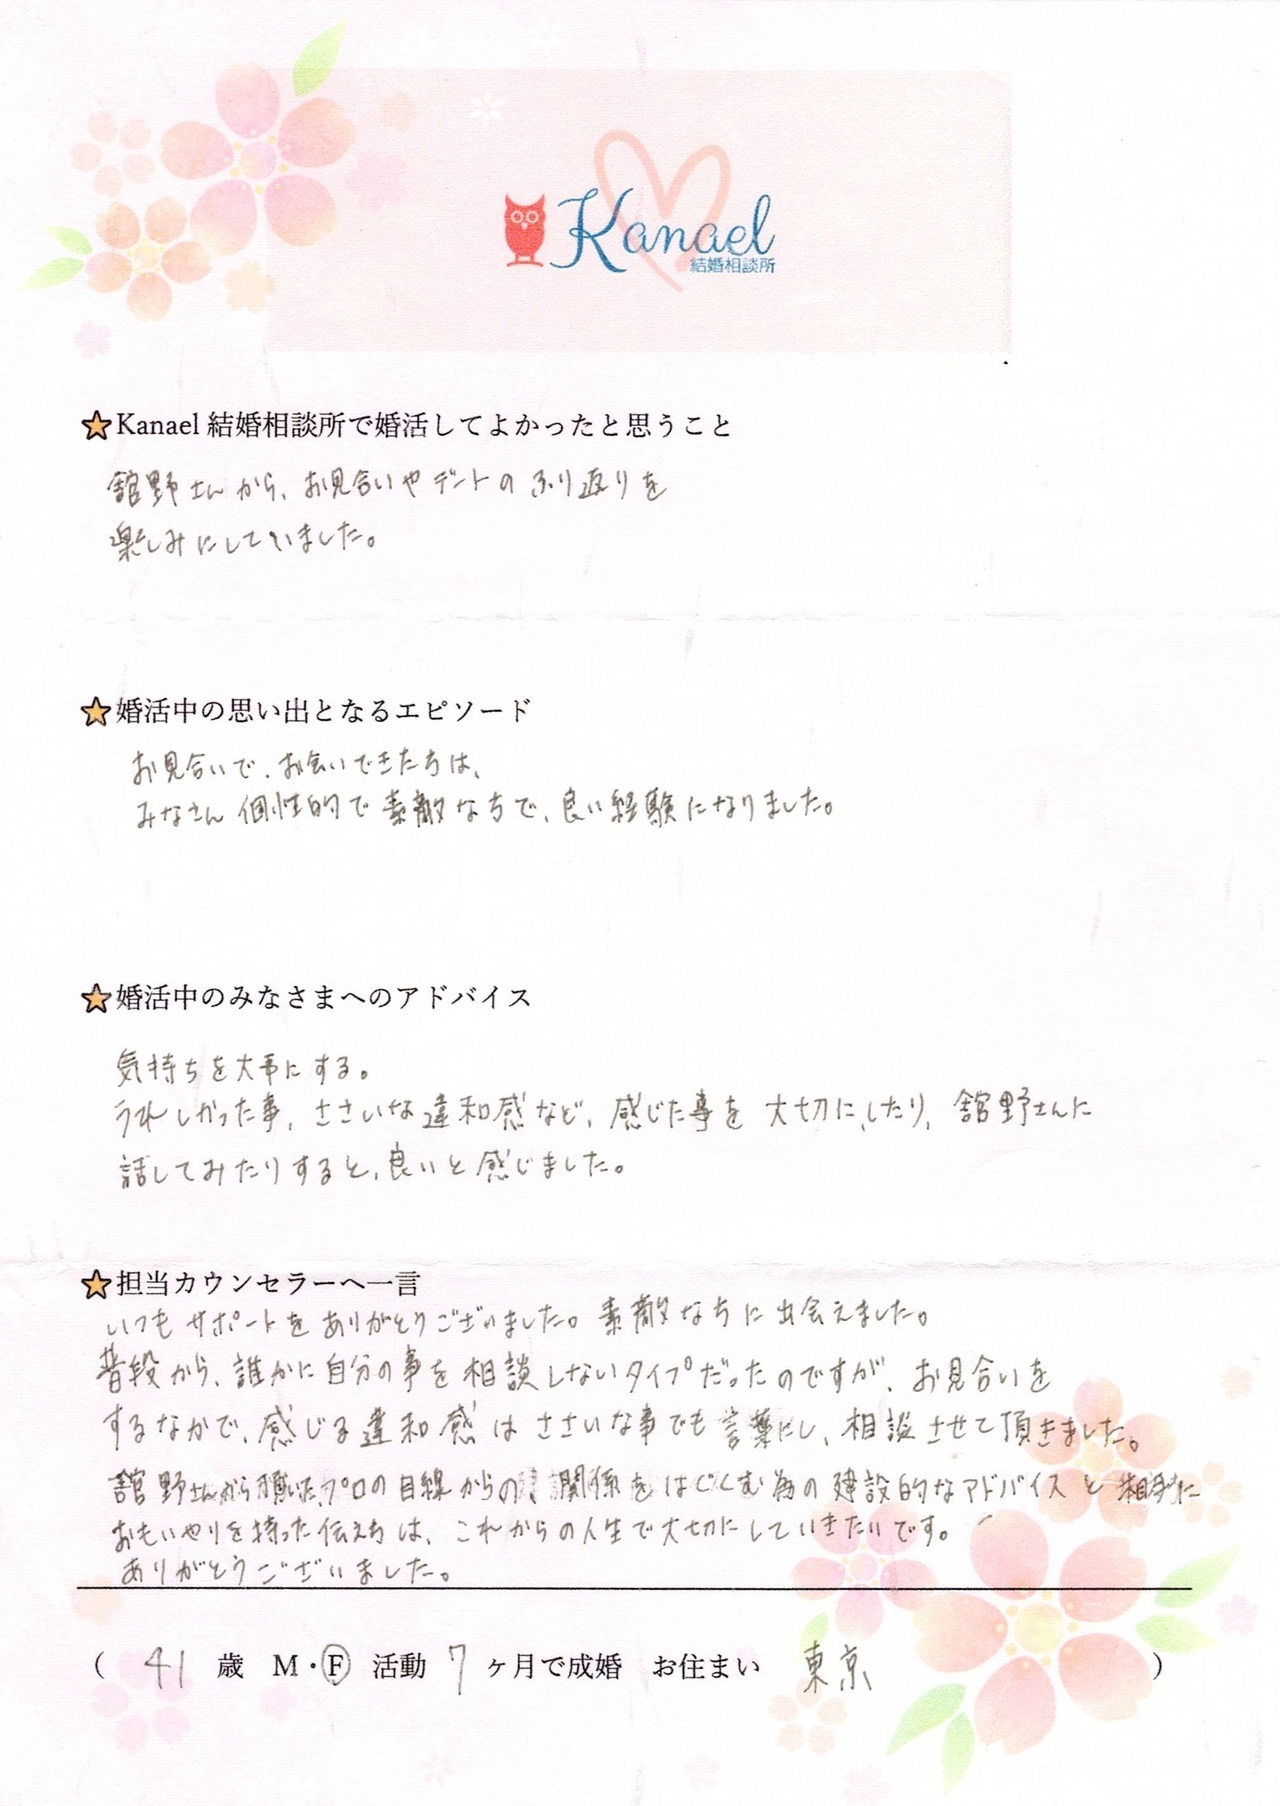 Kanael
結婚相談所
Kanael 結婚相談所で婚活してよかったと思うこと
舘野さんから、お見合いやデートのふり返りを
楽しみにしていました。
婚活中の思い出となるエピソード
お見合いで、お会いできた方は、
みなさん個性的で素敵な方で、良い経験になりました。
婚活中のみなさまへのアドバイス
気持ちを大事にする。
うれしかった事、ささいな違和感など、感じた事を大切にしたり、舘野さんに
話してみたりすると、良いと感じました。
担当カウンセラーへ一言
いつもサポートをありがとうございました。素敵な方に出会えました。
普段から、誰かに自分の事を相談しないタイプだったのですが、お見合いを
するなかで、感じる違和感はささいな事でも言葉にし、相談させて頂きました。
舘野さんから頂いた、プロの目線からの、関係をはぐくむ為の建設的なアドバイスと相手に
おもいやりを持った伝え方は、これからの人生で大切にしていきたいです。
ありがとうございました。
( 41 歳 M・F 活動 7 ヶ月で成婚 お住まい 東京 )